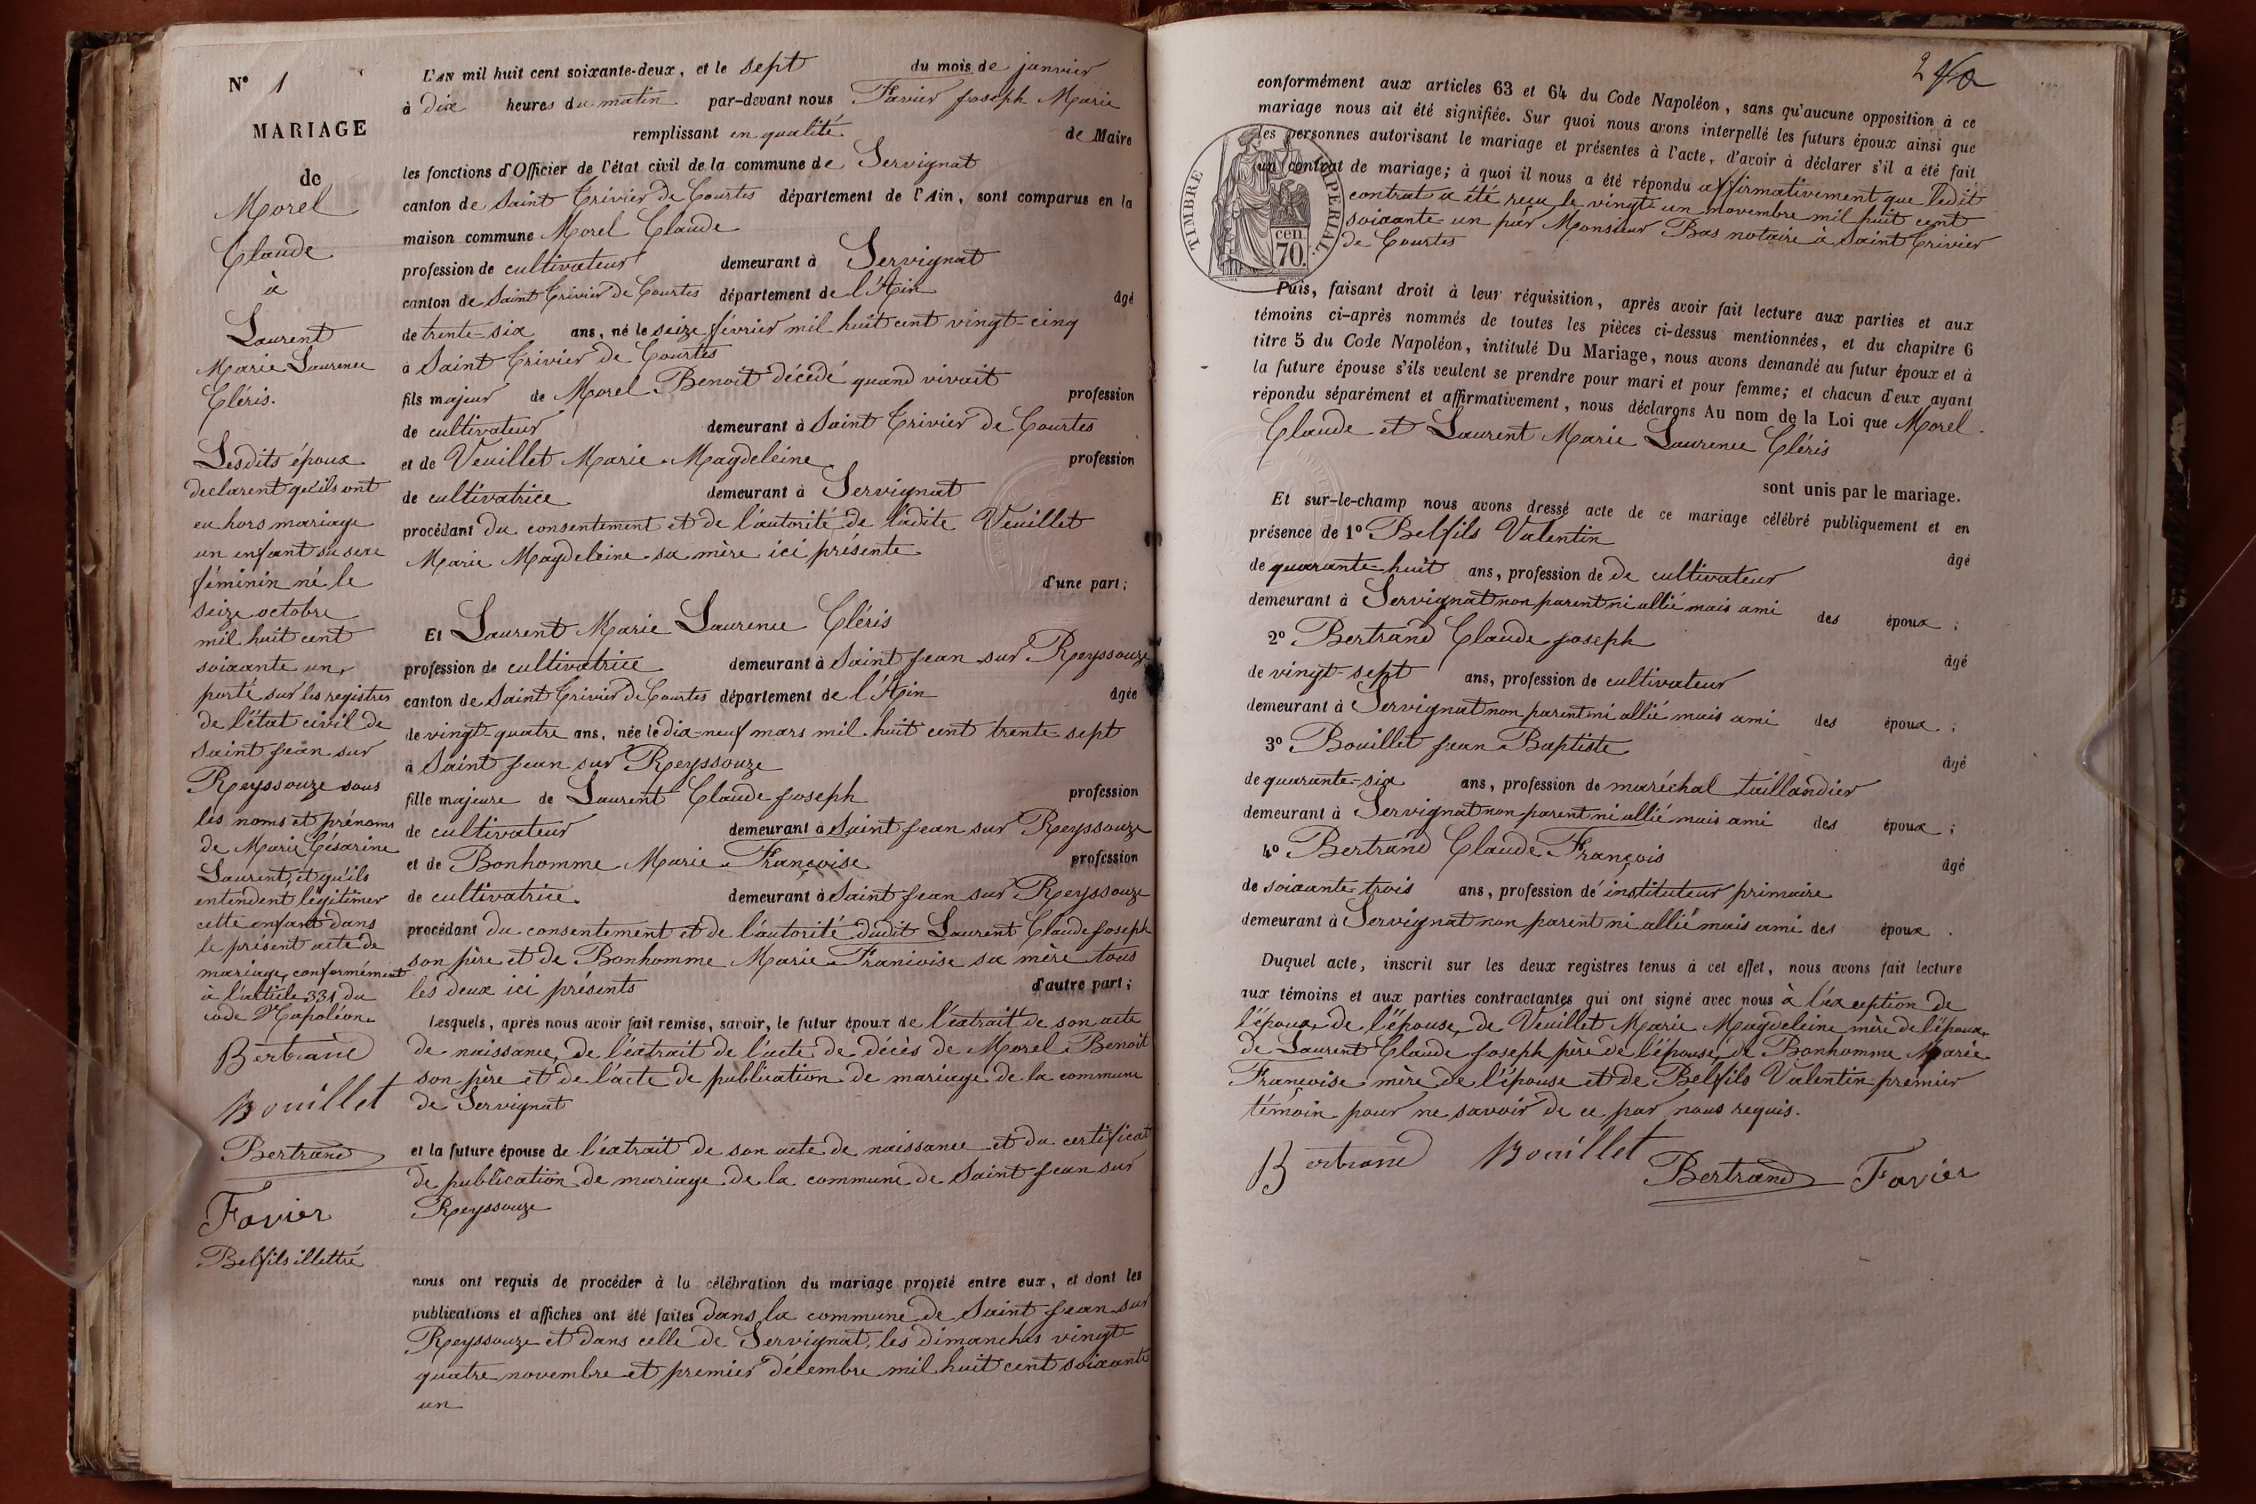 N° 1
MARIAGE
de
Morel
Claude
à
Laurent
Marie Laurence
Cléris.
Lesdits époux
declarent qu'ils ont
eu hors mariage
un enfant du sexe
féminin né le
seize octobre
mil huit cent
soixante un,
porté sur les registres
de l'état civil de
Saint Jean sur
Reyssouze sous
les noms et prénoms
de Marie Césarine
Laurent, et qu'ils
entendent légitimer
cette enfant dans
le présent acte de
mariage, conformément
à l'article 331 du
code Napoléon.
Bertrand
Bouillet
Bertrand
Favier
Belfils illettré
L'AN mil huit cent soixante-deux, et le sept du mois de janvier
à dix heures du matin par-devant nous Favier Joseph Marie
remplissant en qualité de Maire
les fonctions d'Officier de l'état civil de la commune de Servignat
canton de Saint Trivier de Courtes département de l'Ain, sont comparus en la
maison commune Morel Claude
profession de cultivateur demeurant à Servignat
canton de Saint Trivier de Courtes département de l'Ain âgé
de trente-six ans, né le seize février mil huit cent vingt-cinq
à Saint Trivier de Courtes
fils majeur de Morel Benoit décédé quand vivait profession
de cultivateur demeurant à Saint Trivier de Courtes
et de Veuillet Marie Magdeleine profession
de cultivatrice demeurant à Servignat
procédant du consentement et de l'autorité de ladite Veuillet
Marie Magdeleine sa mère ici présente
d'une part;
Et Laurent Marie Laurence Cléris
profession de cultivatrice demeurant à Saint Jean sur Reyssouze
canton de Saint Trivier de Courtes département de l'Ain âgée
de vingt-quatre ans, née le dix-neuf mars mil huit cent trente sept
à Saint Jean sur Reyssouze
fille majeure de Laurent Claude Joseph profession
de cultivateur demeurant à Saint Jean sur Reyssouze
et de Bonhomme Marie Françoise profession
de cultivatrice. demeurant à Saint Jean sur Reyssouze
procédant du consentement et de l'autorité dudit Laurent Claude Joseph
son père et de Bonhomme Marie Francoise sa mère tous
les deux ici présents d'autre part;
Lesquels, après nous avoir fait remise, savoir, le futur époux de l'extrait de son acte
de naissance, de l'extrait de l'acte de décès de Morel Benoit
son père et de l'acte de publication de mariage de la commune
de Servignat
et la future épouse de l'extrait de son acte de naissance et du certificat
de publication de mariage de la commune de Saint Jean sur
Reyssouze
nous ont requis de procéder à la célébration du mariage projeté entre eux, et dont les
publications et affiches ont été faites dans la commune de Saint Jean sur
Reyssouze et dans celle de Servignat, les dimanches vingt-
quatre novembre et premier décembre mil huit cent soixante
un
conformément aux articles 63 et 64 du Code Napoléon, sans qu'aucune opposition à ce
mariage nous ait été signifiée. Sur quoi nous avons interpellé les futurs époux ainsi que
les personnes autorisant le mariage et présentes à l'acte, d'avoir à déclarer s'il a été fait
un contrat de mariage; à quoi il nous a été répondu affirmativement que ledit
contrat a été reçu le vingt-un novembre mil huit cent
soixante-un par Monsieur Bas notaire à Saint Trivier
de Courtes
TIMBRE IMPERIAL.
cen
70.
Puis, faisant droit à leur réquisition, après avoir fait lecture aux parties et aux
témoins ci-après nommés de toutes les pièces ci-dessus mentionnées, et du chapitre 6
titre 5 du Code Napoléon, intitulé Du Mariage, nous avons demandé au futur époux et à
la future épouse s'ils veulent se prendre pour mari et pour femme; et chacun d'eux ayant
répondu séparément et affirmativement, nous déclarons Au nom de la Loi que Morel
Claude et Laurent Marie Laurence Cléris
sont unis par le mariage.
Et sur-le-champ nous avons dressé acte de ce mariage célébré publiquement et en
présence de 1° Belfils Valentin âgé
de quarante-huit ans, profession de de cultivateur
demeurant à Servignat non parent ni allié mais ami des époux;
2° Bertrand Claude Joseph âgé
de vingt-sept ans, profession de cultivateur
demeurant à Servignat non parent ni allié mais ami des époux;
3° Bouillet Jean Baptiste âgé
de quarante-six ans, profession de maréchal taillandier
demeurant à Servignat non parent ni allié mais ami des époux;
4° Bertrand Claude François âgé
de soixante-trois ans, profession de instituteur primaire
demeurant à Servignat non parent ni allié mais ami des époux.
Duquel acte, inscrit sur les deux registres tenus à cet effet, nous avons fait lecture
aux témoins et aux parties contractantes qui ont signé avec nous à l'exception de
l'époux, de l'épouse, de Veuillet Marie Magdeleine mère de l'époux,
de Laurent Claude Joseph père de l'épouse, de Bonhomme Marie
Francoise mère de l'épouse et de Belfils Valentin premier
témoin pour ne savoir de ce par nous requis.
Bertrand Bouillet Bertrand Favier